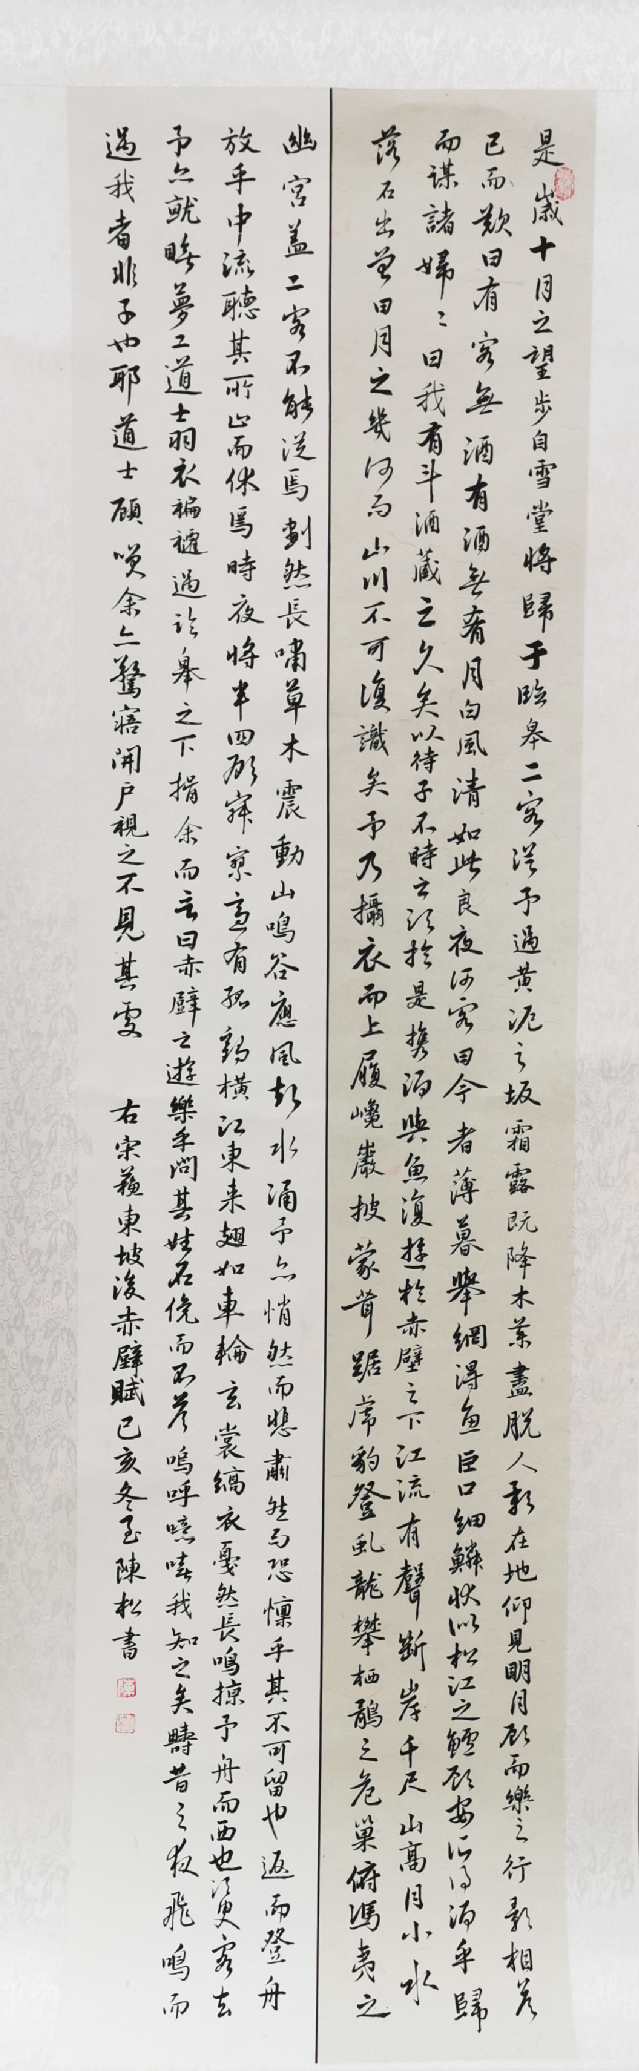 是歲十月之望步自雪堂將歸于臨皋二客從予過黃泥之坂霜露既降木葉盡脫人影在地仰見明月顧而樂之行歌相答
已而歎曰有客無酒有酒無肴月白風清如此良夜何客曰今者薄暮舉網得魚巨口細鱗狀似松江之鱸顧安所得酒乎歸
而謀諸婦〻曰我有斗酒藏之久矣以待子不時之須於是攜酒與魚復遊於赤壁之下江流有聲斷岸千尺山高月小水
落石出曾日月之幾何而山川不可復識矣予乃攝衣而上履巉巖披蒙茸踞虎豹登虬龍攀栖鶻之危巢俯馮夷之
幽宮蓋二客不能從焉劃然長嘯草木震動山鳴谷應風起水涌予亦悄然而悲肅然而恐懍乎其不可留也返而登舟
放乎中流聽其所止而休焉時夜將半四顧寂寥適有孤鶴橫江東來翅如車輪玄裳縞衣戛然長鳴掠予舟而西也須臾客去
予亦就睡夢二道士羽衣蹁躚過臨皋之下揖余而言曰赤壁之遊樂乎問其姓名俛而不答嗚呼噫嘻我知之矣疇昔之夜飛鳴而
過我者非子也耶道士顧笑余亦驚寤開戶視之不見其處 右宋蘇東坡後赤壁賦己亥冬至陳松書